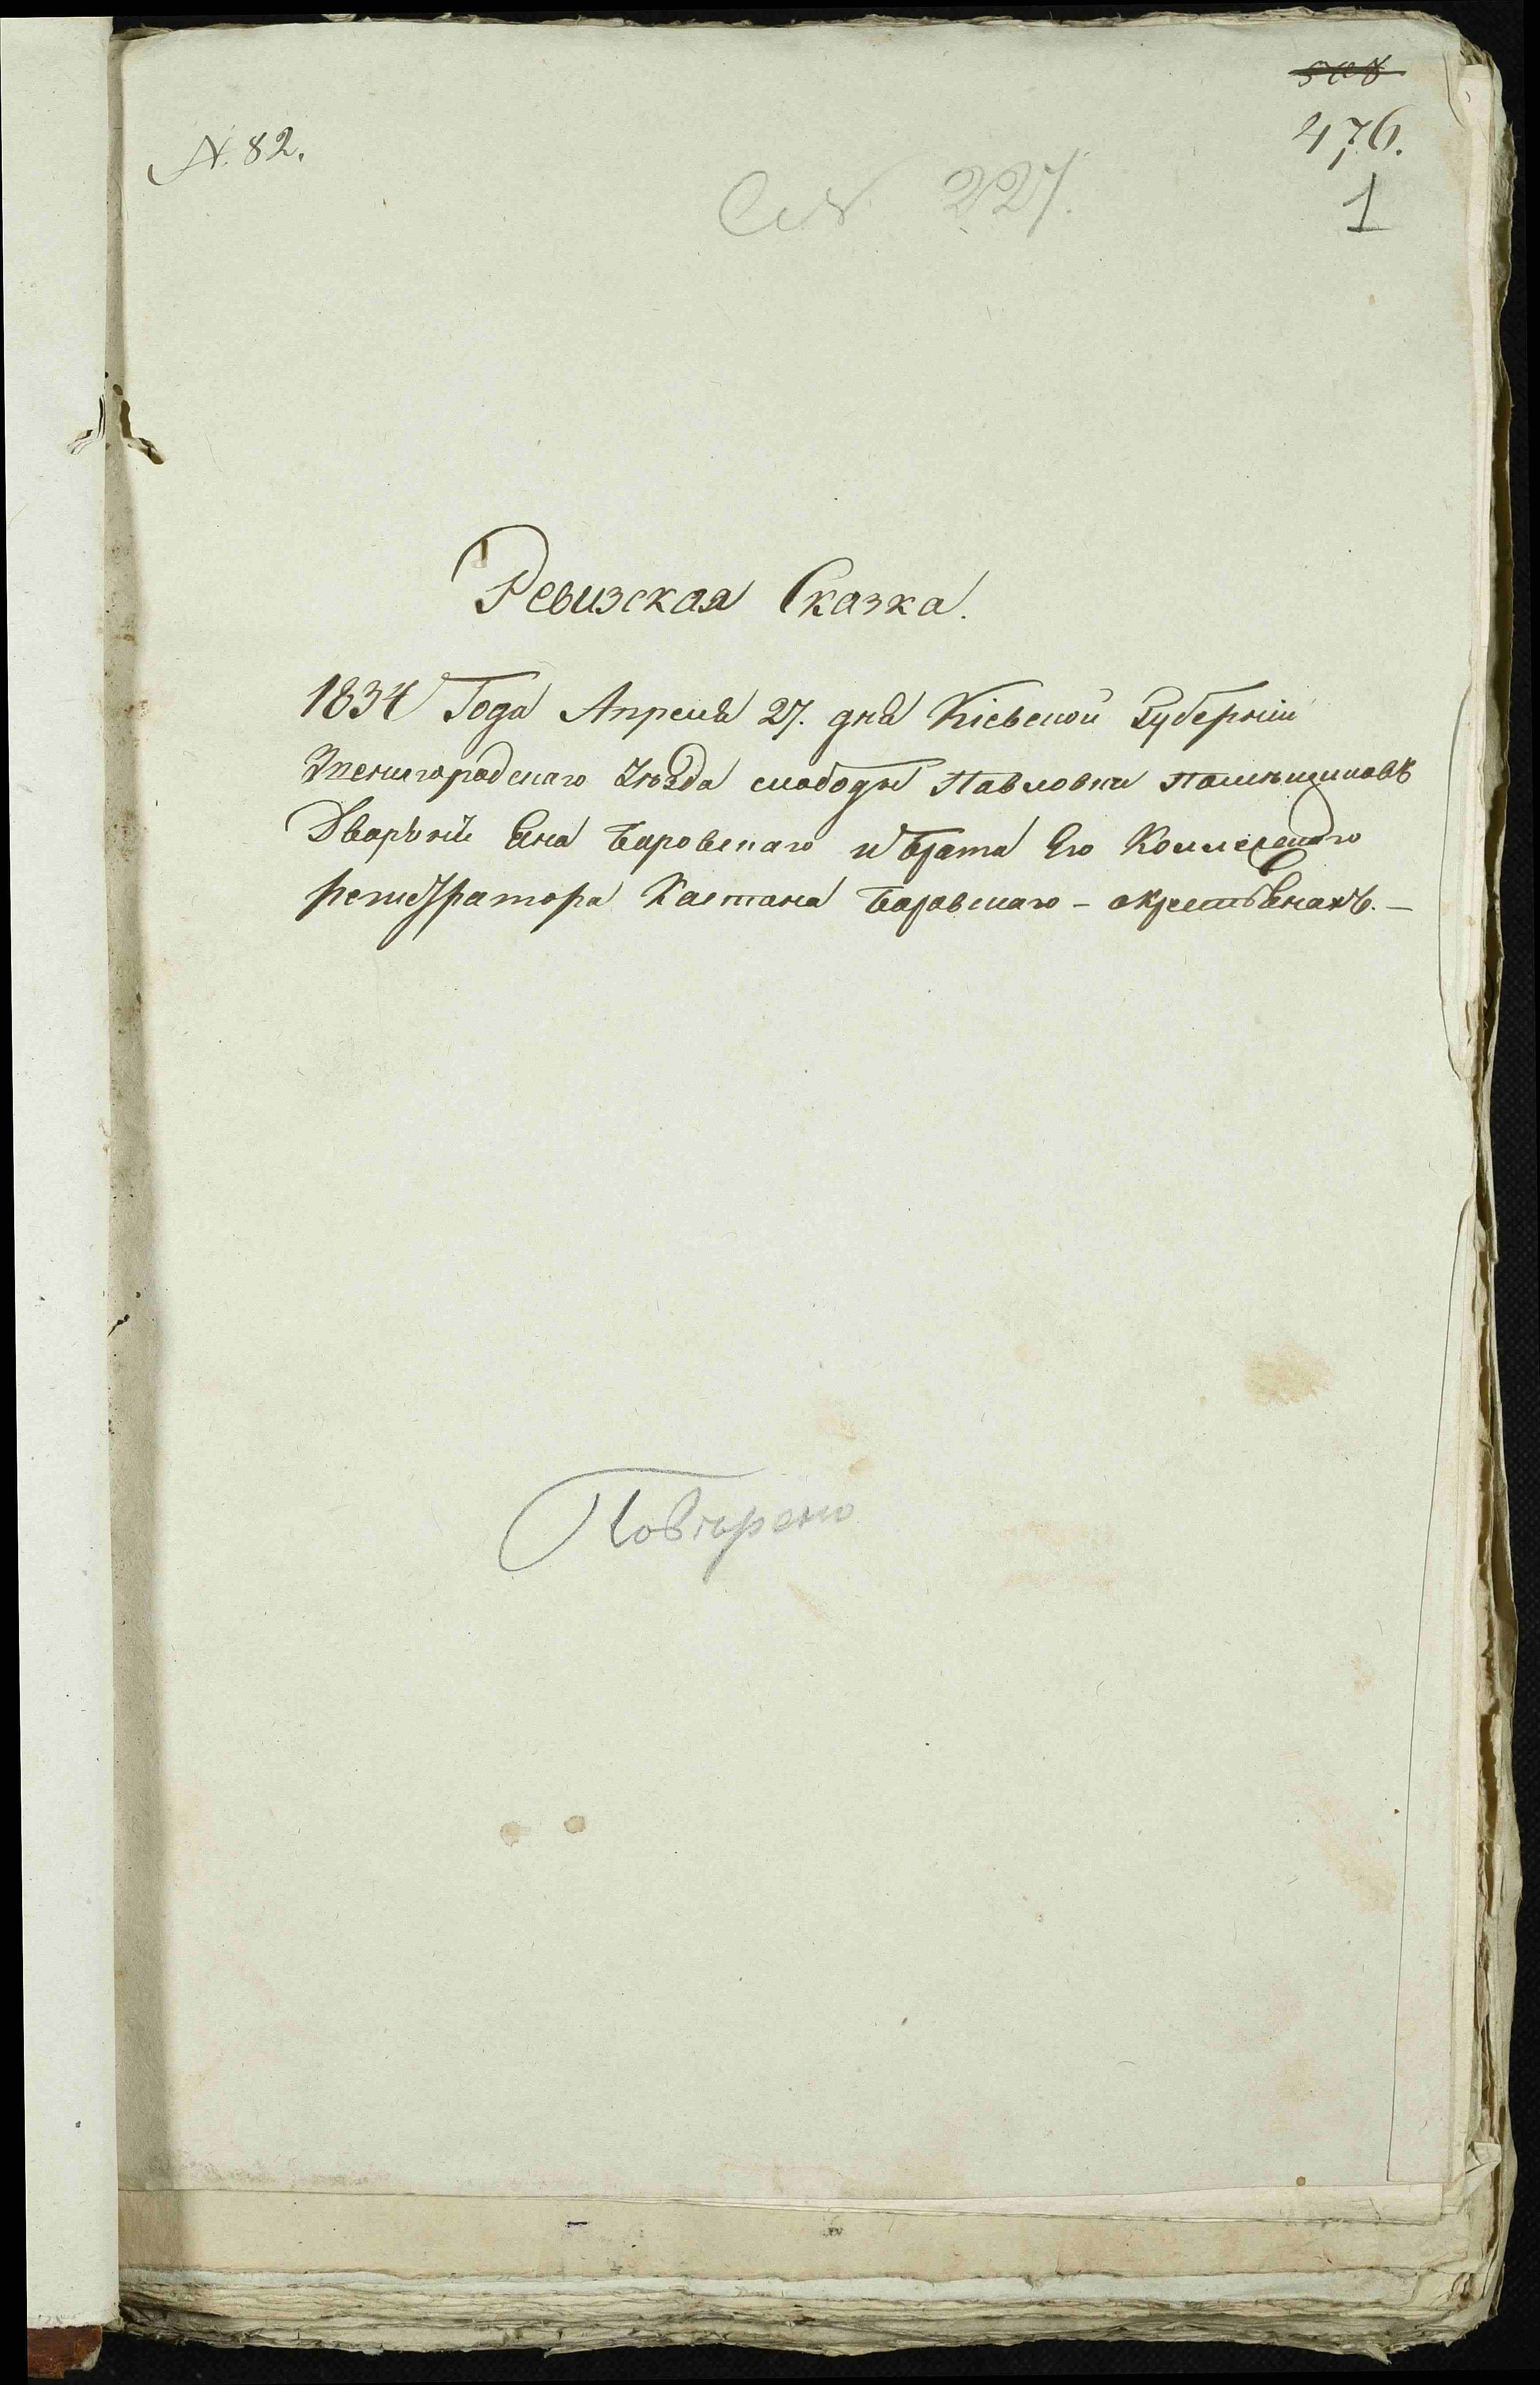 508
N. 82.
476.
№ 227.
1
Ревизская Сказка.
1834 Года Апреля 27. дня Кіевской Губерніи
Звенигородскаго Уѣзда слободы Павловки помѣщиковъ
Дворянъ Яна Боровскаго и брата Его Коллежскаго
регистратора Каетана Боровскаго - окрестьянахъ. -
Повѣрено